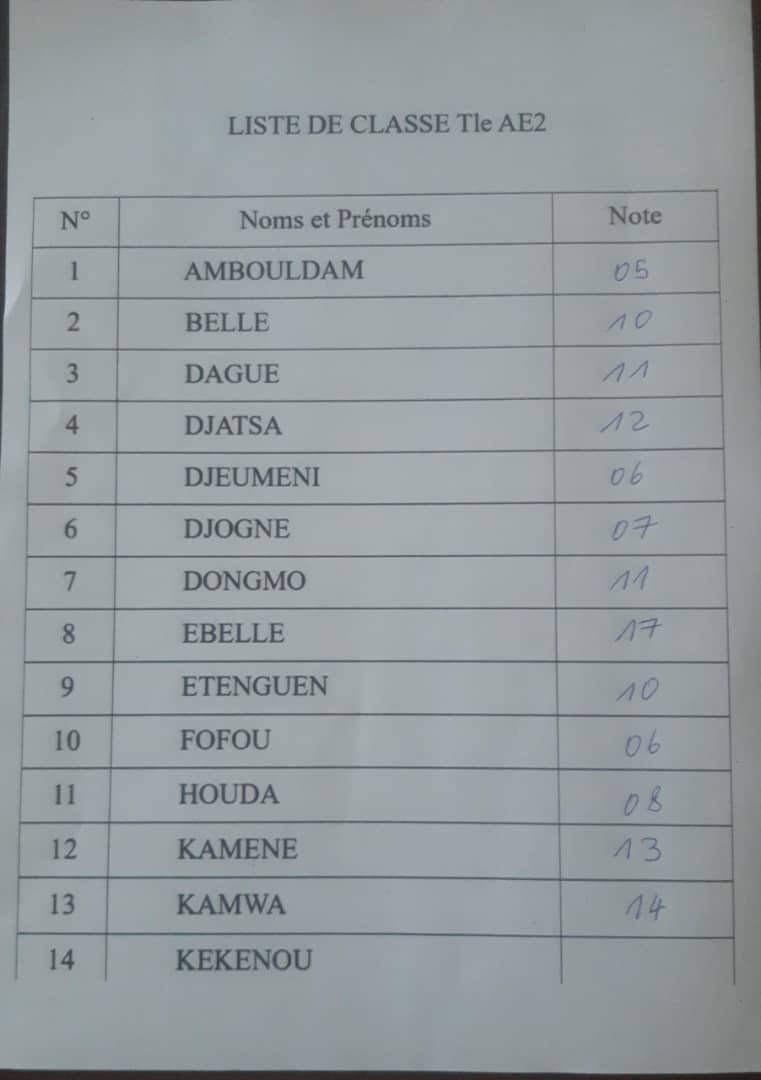 LISTE DE CLASSE Tle AE2
N° Noms et Prénoms Note
1 AMBOULDAM 05
2 BELLE 10
3 DAGUE 11
4 DJATSA 12
5 DJEUMENI 06
6 DJOGNE 07
7 DONGMO 11
8 EBELLE 17
9 ETENGUEN 10
10 FOFOU 06
11 HOUDA 08
12 KAMENE 13
13 KAMWA 14
14 KEKENOU